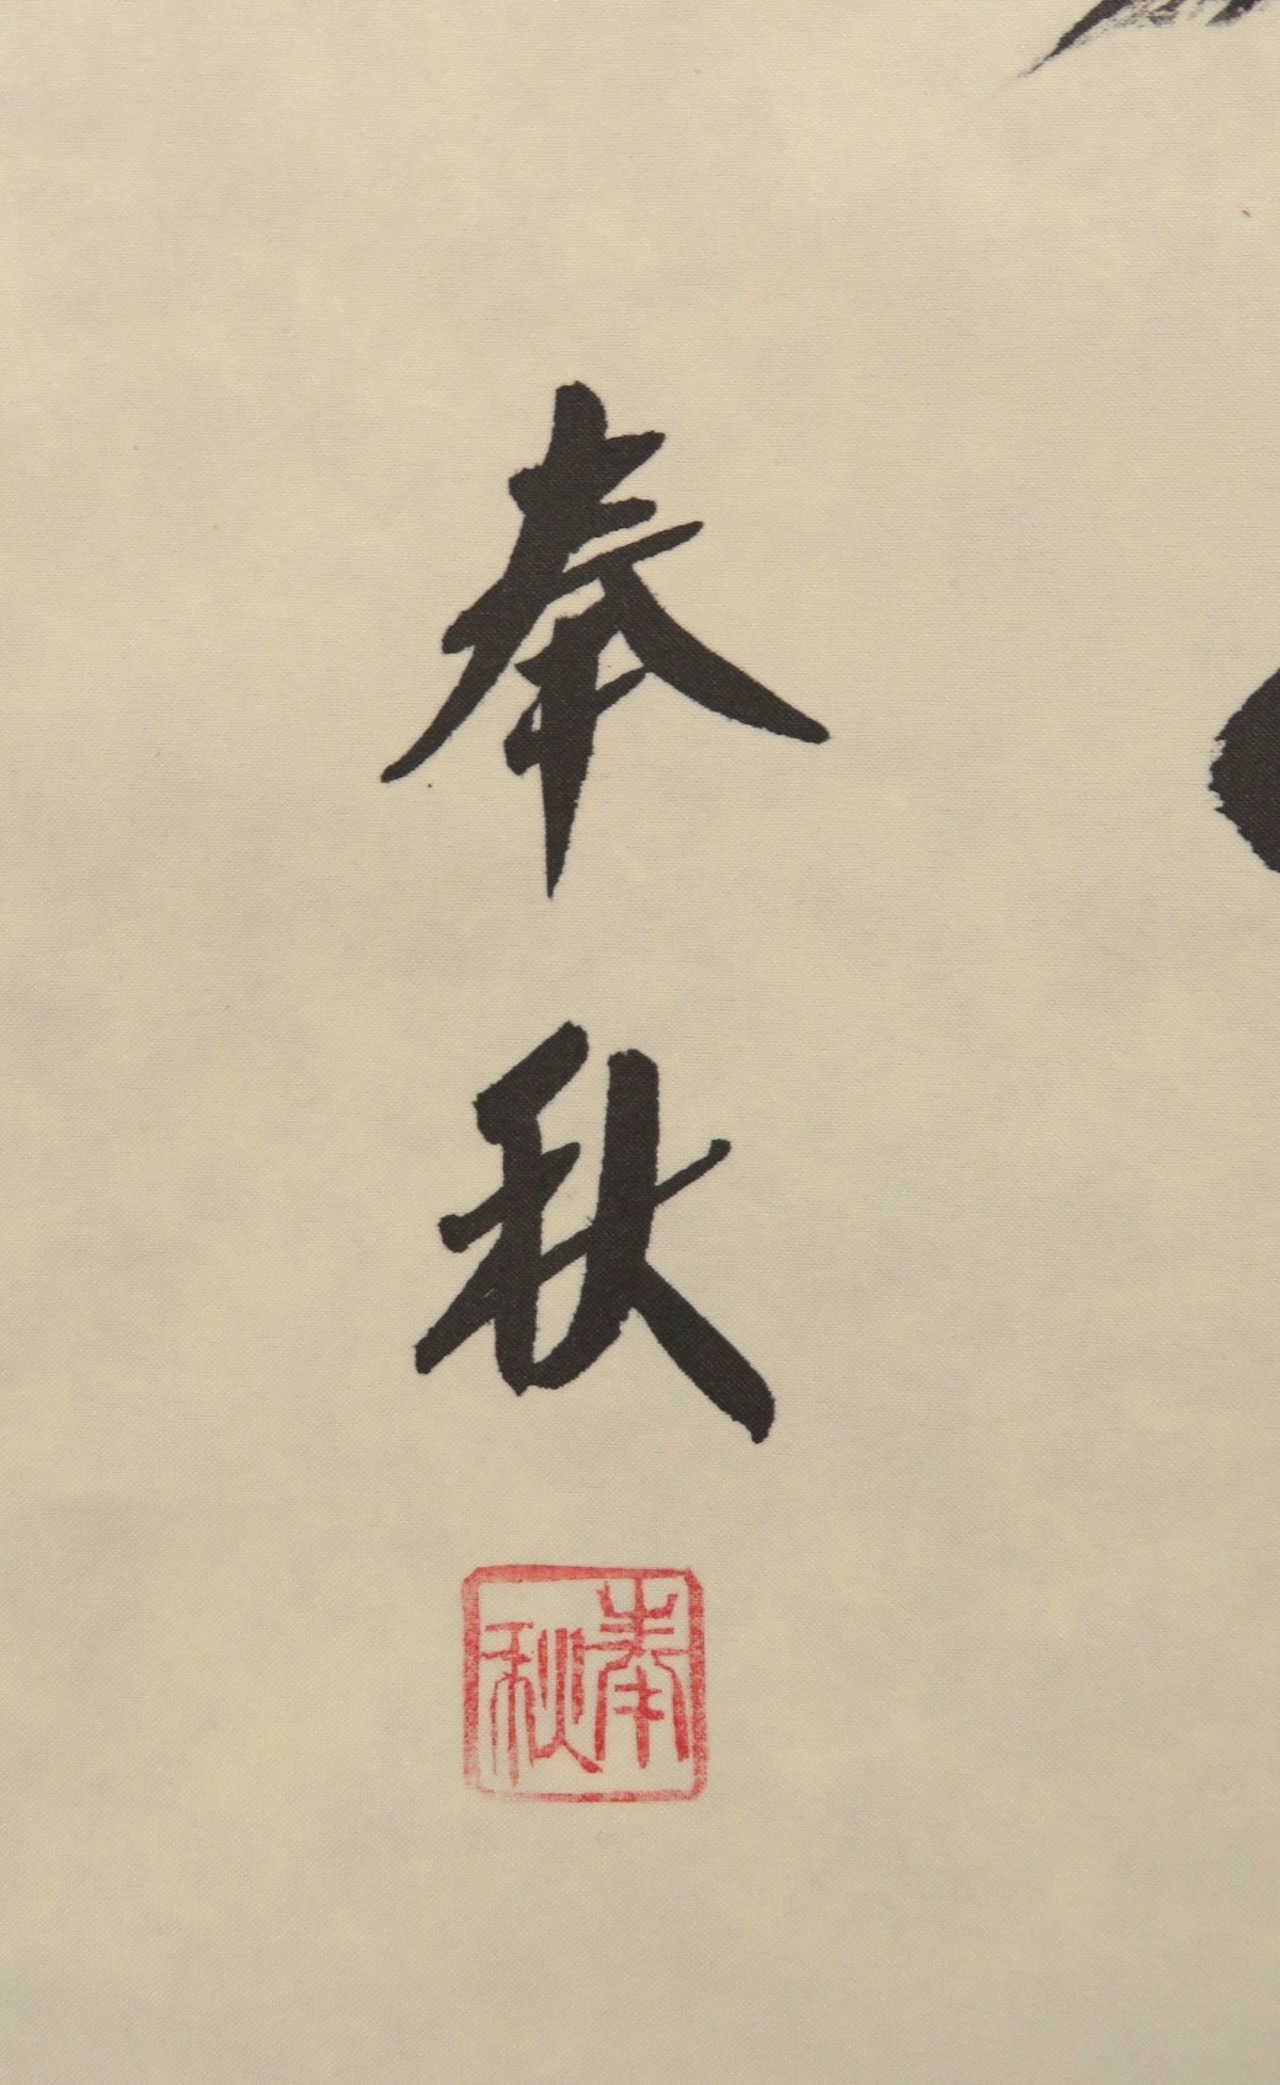 奉秋
奉秋